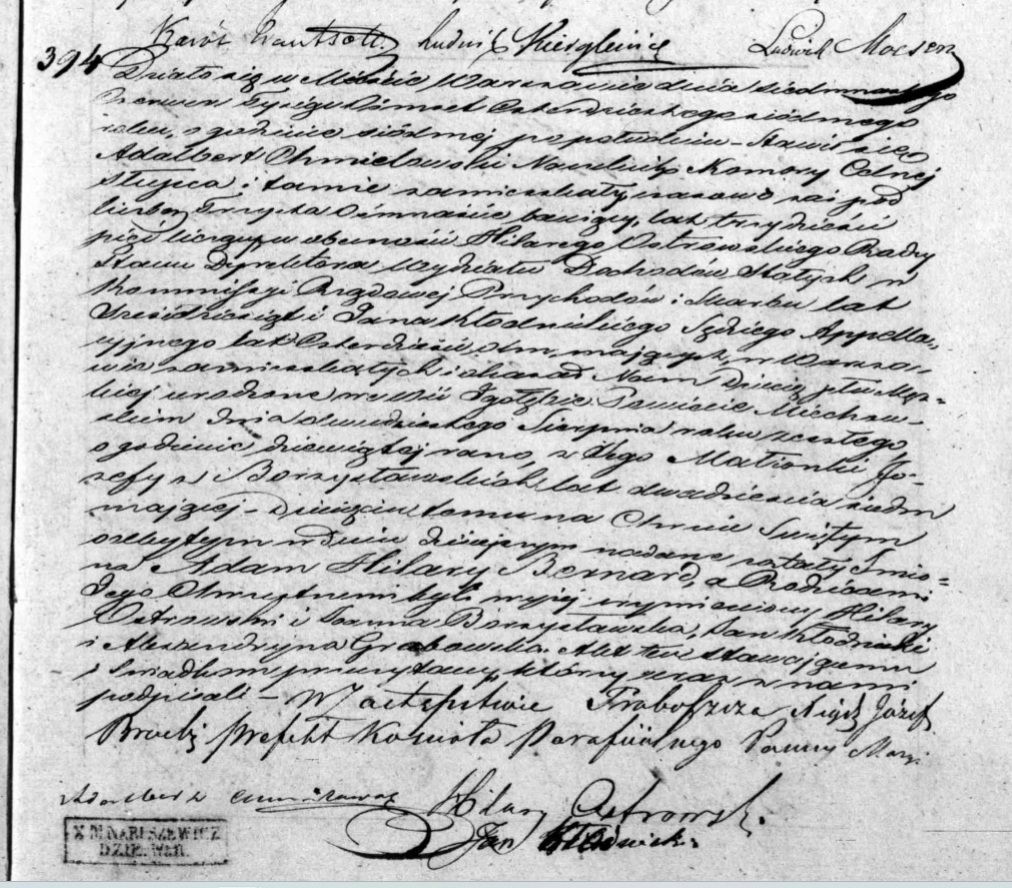 Karól Ludwik Kiergleinig Ludwik Moesen
394 Działo się w Mieście Warszawie dnia siedmnastego
Czerwca Tysiąc Ośmset Czterdziestego siódmego
roku, o godzinie siódmej po południu – Stawił się
Adalbert Chmielowski Naczelnik Komory Celnej
Słupca i tamże zamieszkały, czasowo zaś pod
liczbą Trzysta Ośmnaście bawiący, lat trzydzieści
pięć liczący w obecności Hilarego Ostrowskiego Radcy
Stanu Dyrektora Wydziału Dochodów Stałych w
Kommissyi Rządowej Przychodów i Skarbu lat
Sześćdziesiąt i Jana Kłodnickiego Sędziego Appella-
cyjnego lat Czterdzieści ośm, mających, w Warsza-
wie zamieszkałych i okazał Nam Dziecię płci Męz-
kiej urodzone we wsi Powiecie Miechow-
skim dnia dwudziestego Sierpnia roku zeszłego
o godzinie dziewiątej rano, z Jego Małżonki Jó-
zefy z Borzysławskich lat dwadzieścia siedm
mającej – Dziecięciu temu na Chrzcie Świętym
odbytym w dniu dzisiejszym nadane zostały Imio-
na Adam Hilary Bernard, a Rodzicami
Jego Chrzestnemi byli wyżej wymieniony Hilary
Ostrowski i Joanna Borzysławska, Jan Kłodnicki
i Alexandryna Grabowska. Akt ten stawającemu
i Świadkom przeczytany, którzy wraz z nami
podpisali – W zastępstwie Proboszcza Xiądz Józef
Prefekt Kościoła Parafialnego Panny Maryi
Adalbert Chmielowski Hilary Ostrowski.
Jan Kłodnicki.
X M NARUSZEWICZ
DZIE. WER.